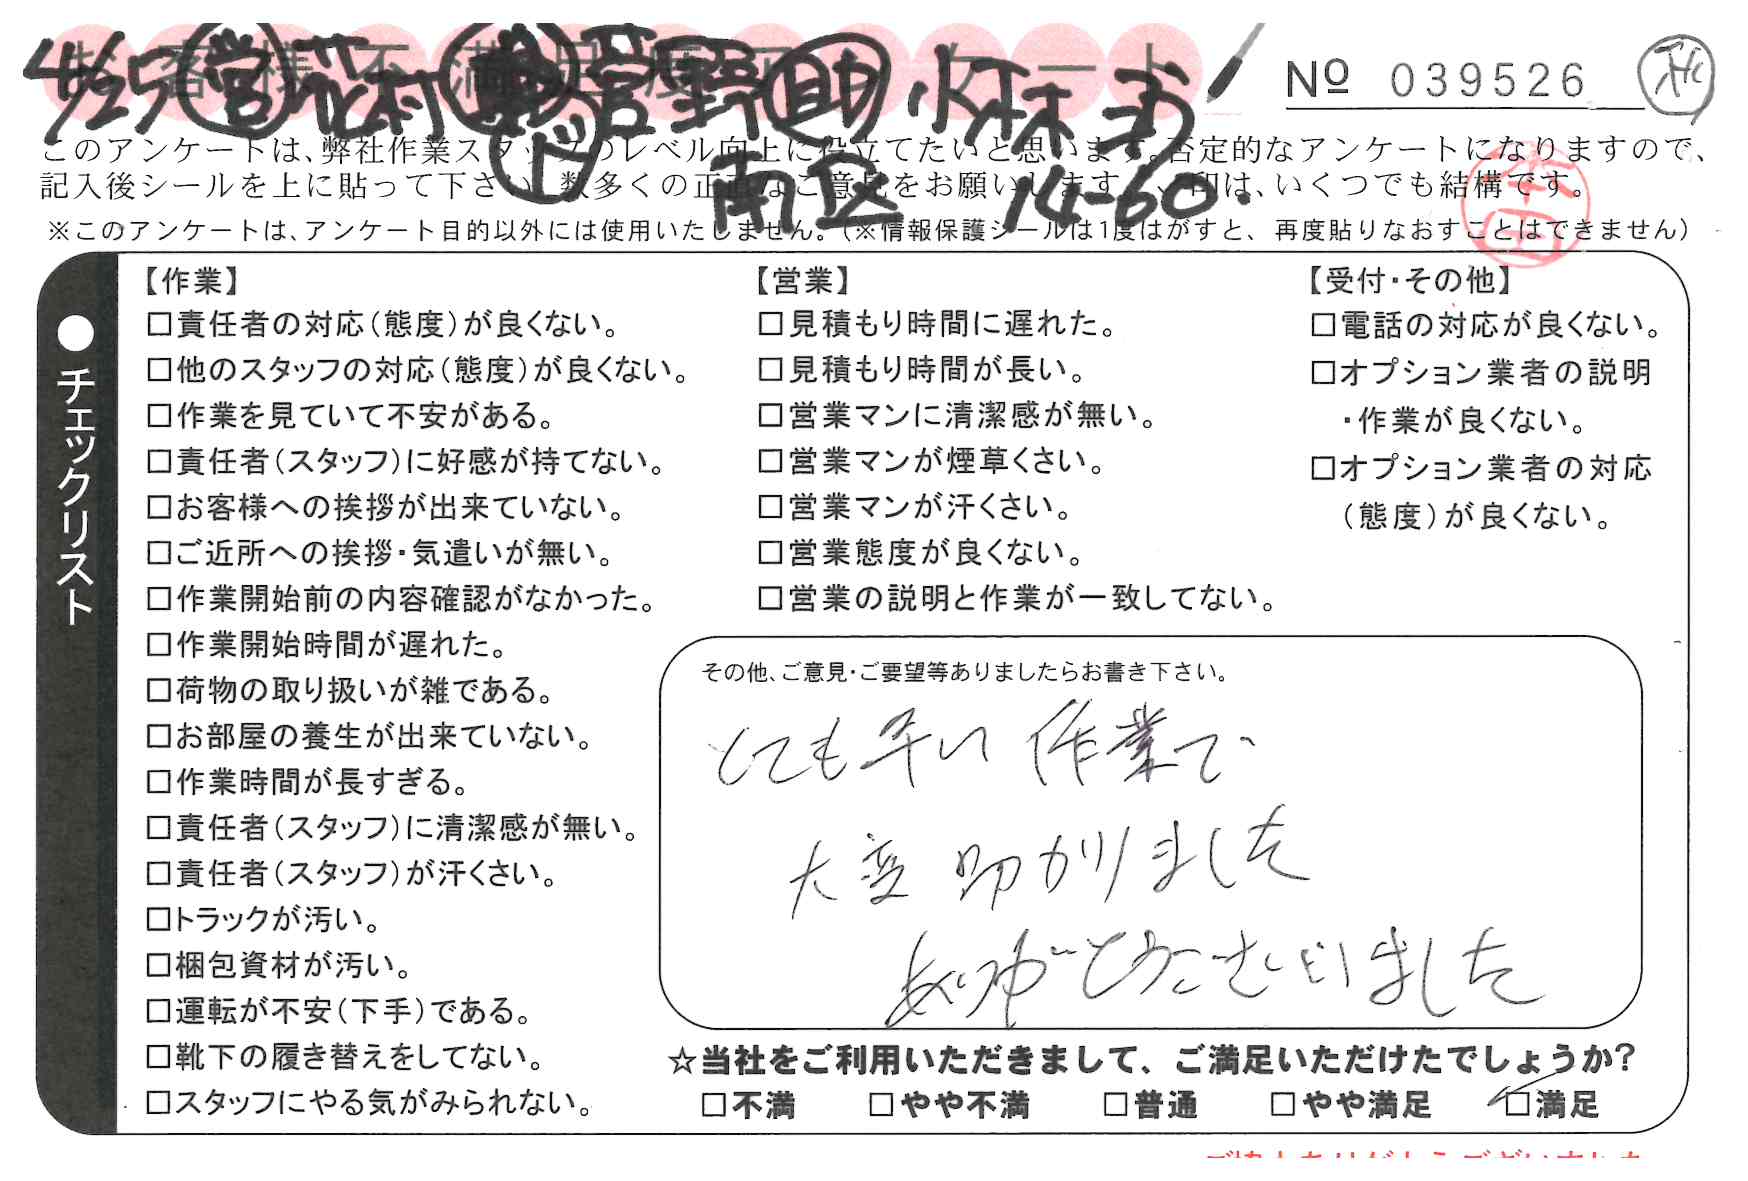 お客様不満足度アンケート
4/25 営 花村 菅野 助 小林
南区 14-60.
№ 039526
このアンケートは、弊社作業スタッフのレベル向上に役立てたいと思います。否定的なアンケートになりますので、
記入後シールを上に貼って下さい。数多くの正直なご意見をお願いします。✓印は、いくつでも結構です。
※このアンケートは、アンケート目的以外には使用いたしません。（※情報保護シールは1度はがすと、再度貼りなおすことはできません）
●チェックリスト
【作業】
□責任者の対応（態度）が良くない。
□他のスタッフの対応（態度）が良くない。
□作業を見ていて不安がある。
□責任者（スタッフ）に好感が持てない。
□お客様への挨拶が出来ていない。
□ご近所への挨拶・気遣いが無い。
□作業開始前の内容確認がなかった。
□作業開始時間が遅れた。
□荷物の取り扱いが雑である。
□お部屋の養生が出来ていない。
□作業時間が長すぎる。
□責任者（スタッフ）に清潔感が無い。
□責任者（スタッフ）が汗くさい。
□トラックが汚い。
□梱包資材が汚い。
□運転が不安（下手）である。
□靴下の履き替えをしてない。
□スタッフにやる気がみられない。
【営業】
□見積もり時間に遅れた。
□見積もり時間が長い。
□営業マンに清潔感が無い。
□営業マンが煙草くさい。
□営業マンが汗くさい。
□営業態度が良くない。
□営業の説明と作業が一致してない。
【受付・その他】
□電話の対応が良くない。
□オプション業者の説明
・作業が良くない。
□オプション業者の対応
（態度）が良くない。
その他、ご意見・ご要望等ありましたらお書き下さい。
とても早い作業で
大変助かりました
ありがとうございました
☆当社をご利用いただきまして、ご満足いただけたでしょうか？
□不満 □やや不満 □普通 □やや満足 □満足
ご協力ありがとうございました